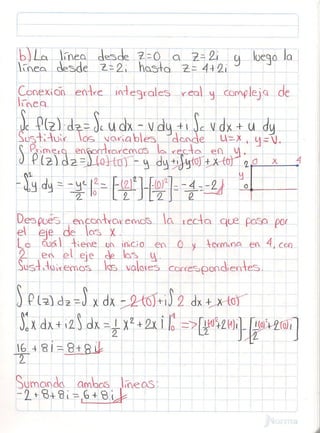 b) La línea desde z=0 a z=2i y luego la
línea desde z=2i hasta z=4+2i
Conexión entre integrales real y compleja de
línea
∫c f(z) dz = ∫c u dx - v dy + i ∫c v dx + u dy
Sustituir las variables donde u=x, y=v.
Primero encontraremos la recta en y.
∫ f(z) dz = ∫(0)(0) - y dy + i∫y(0) + x(0) 2 0 x 4
-∫y dy = -y²/2 |²₀ = [-(2)²/2] - [-(0)²/2] = -4/2 = -2 y 0
Después encontraremos la recta que pasa por
el eje de las x.
Lo cual tiene un inicio en 0 y termina en 4, con
2 en el eje de las y.
Sustituiremos los valores correspondientes.
∫ f(z) dz = ∫ x dx - 2(0) + i∫ 2 dx + x(0)
∫⁴₀ x dx + i2∫ dx = 1/2 x² + 2x i |⁴₀ => [1(4)²/2 + 2(4)i] - [1(0)²/2 + 2(0)i]
16/2 + 8i = 8+8i
Sumando ambas líneas:
-2+8+8i = 6+8i
Norma